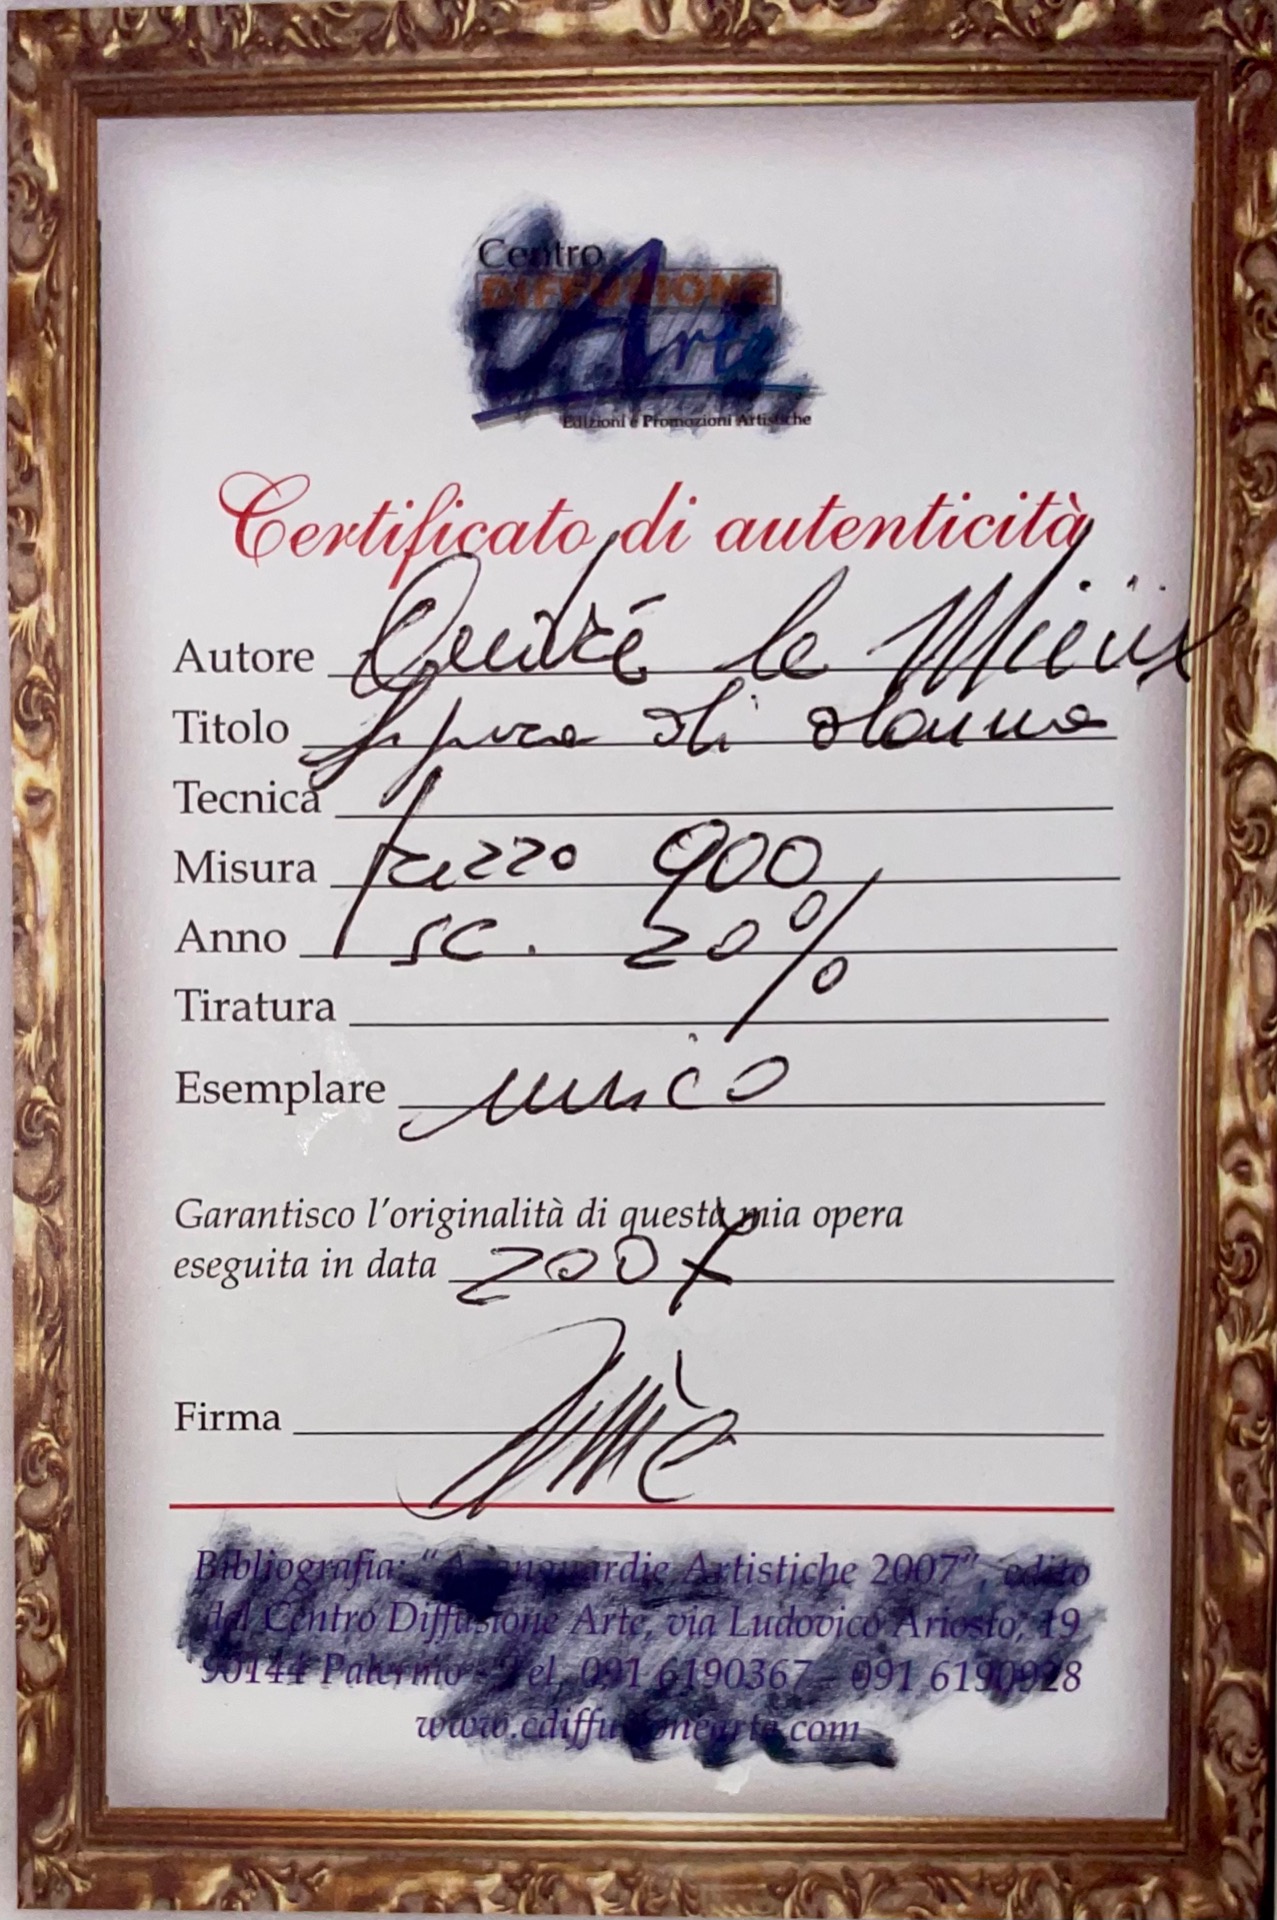 Centro
DIFFUSIONE
Arte
Edizioni e Promozioni Artistiche
Certificato di autenticità
Autore le
Titolo figura di donna
Tecnica
Misura prezzo 900
Anno sc. 20%
Tiratura
Esemplare unico
Garantisco l'originalità di questa mia opera
eseguita in data 2007
Firma
Bibliografia: "Avanguardie Artistiche 2007", edito
dal Centro Diffusione Arte, via Ludovico Ariosto, 19
90144 Palermo - Tel. 091 6190367 - 091 6190928
www.cdiffusionearte.com